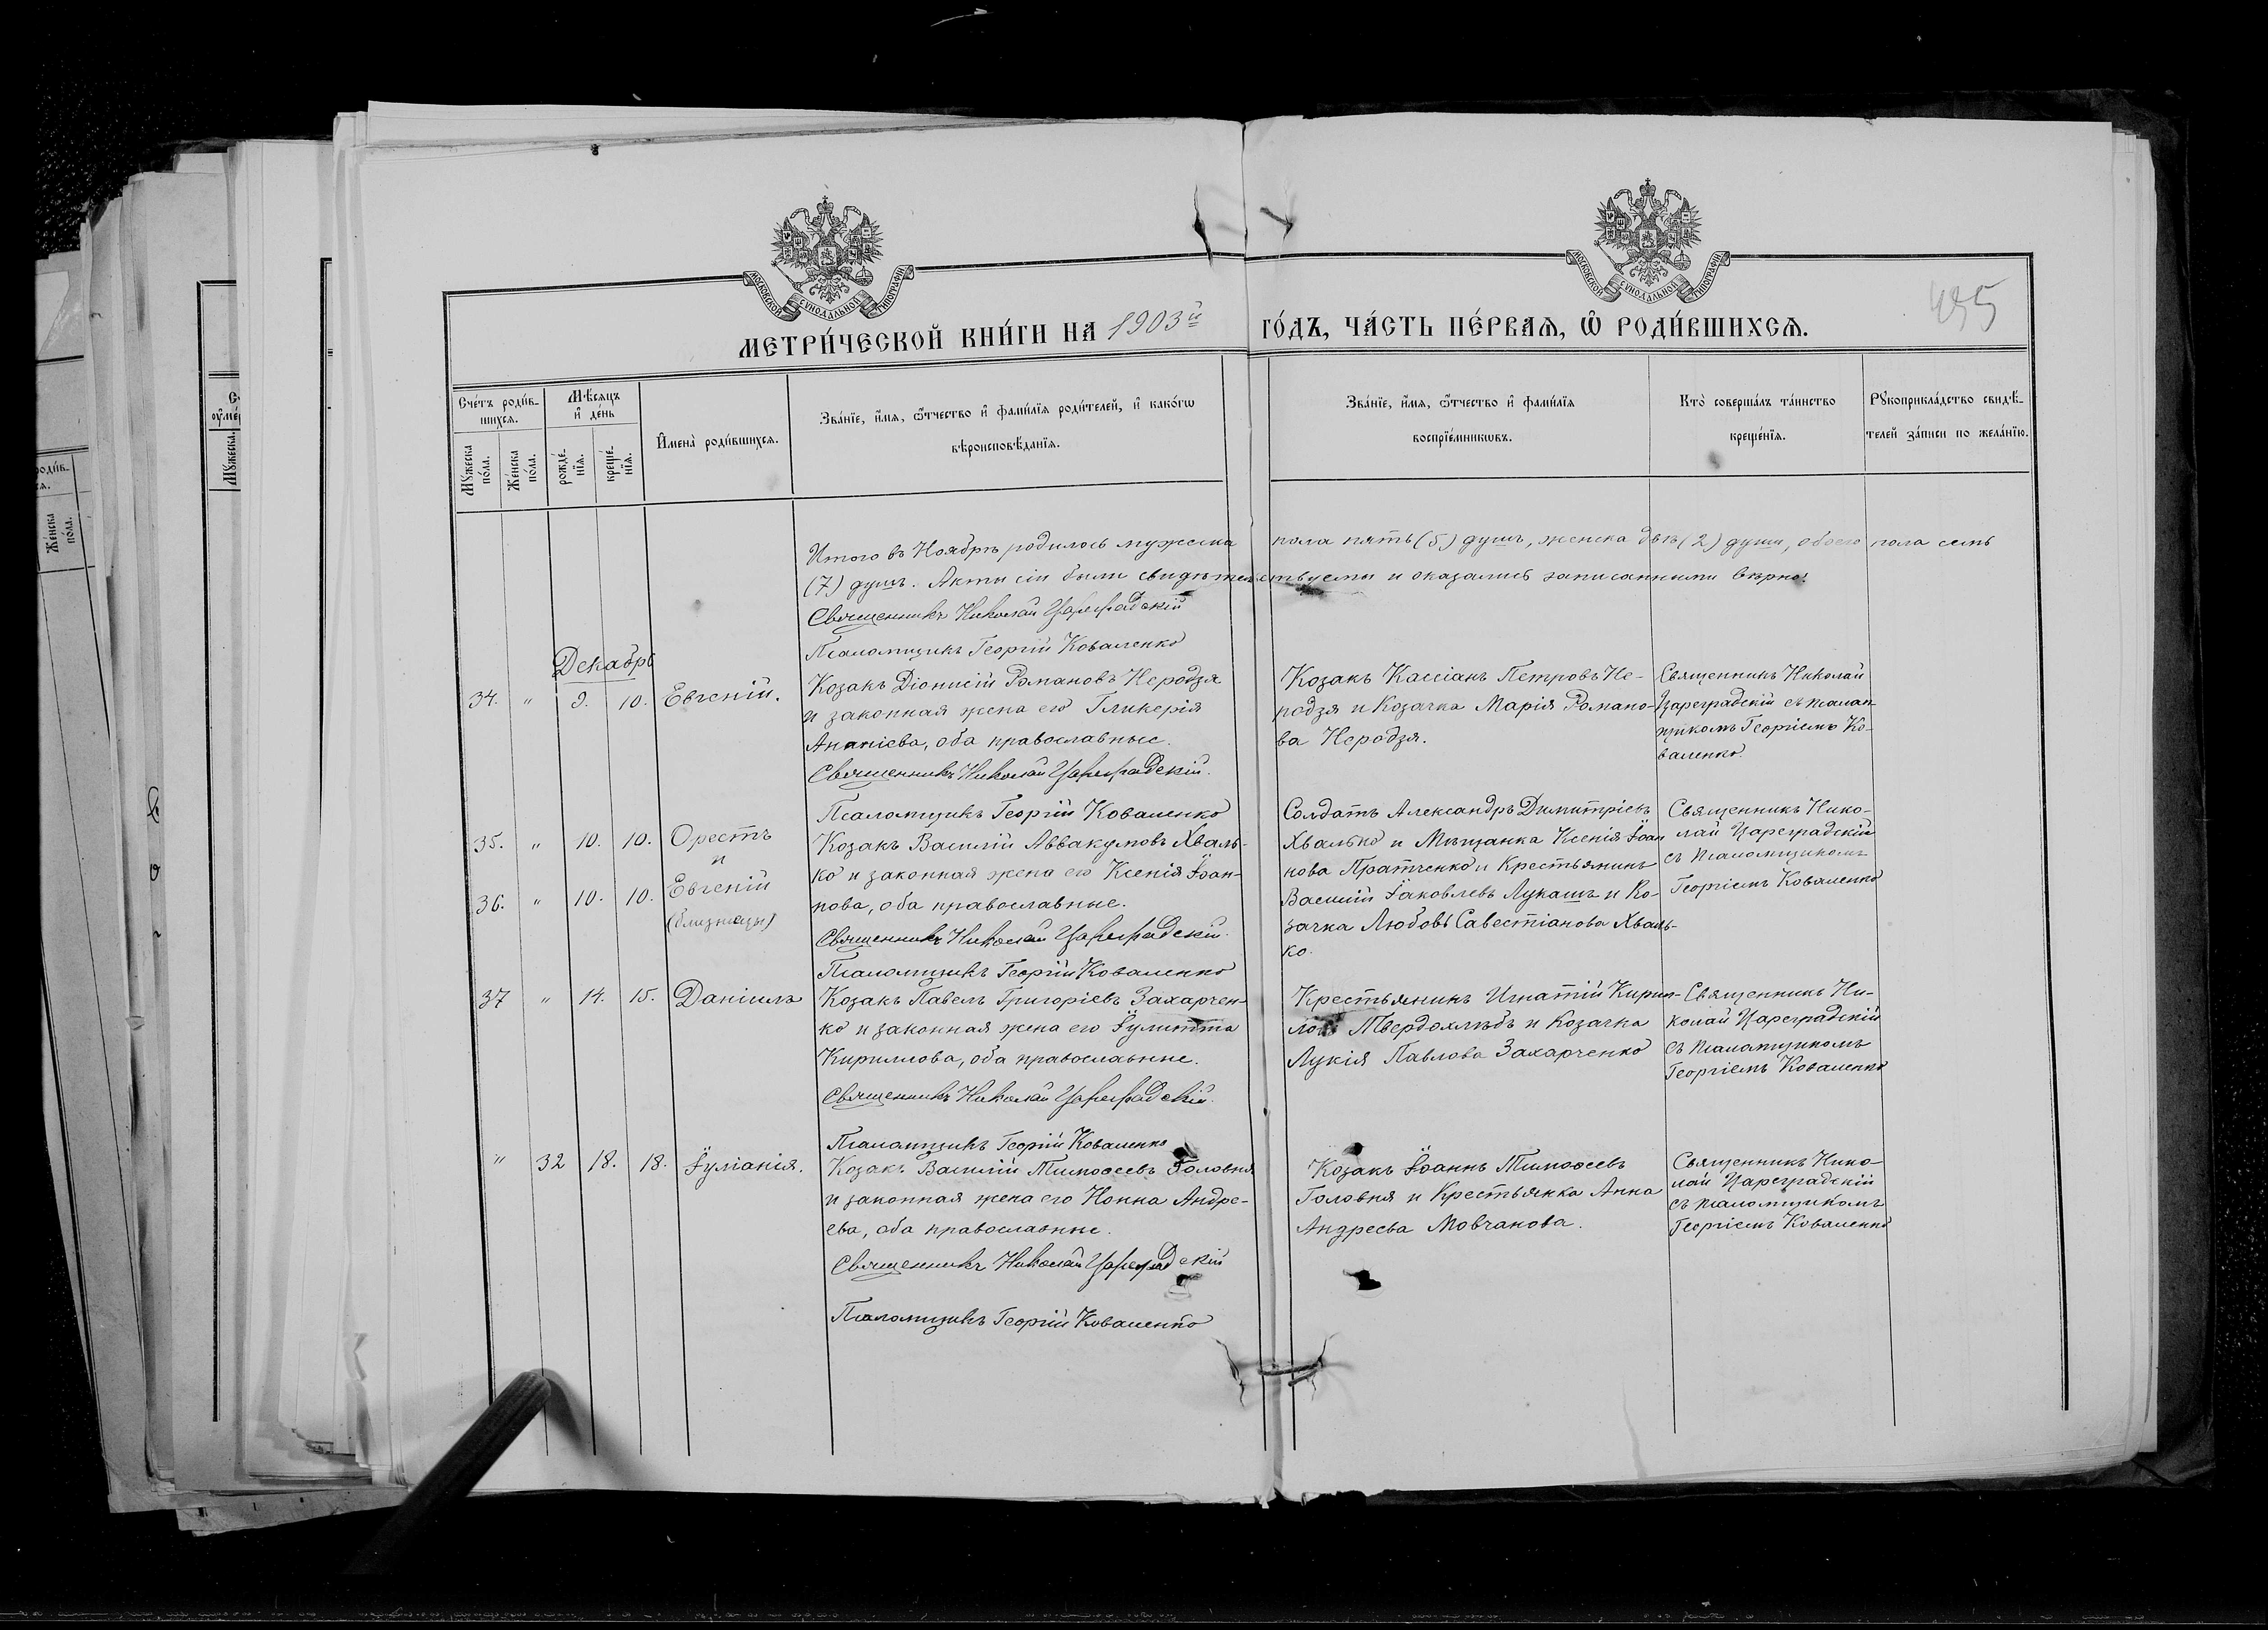 МОСКОВСКОЙ СУНОДАЛЬНОЙ ТИПОГРАФІИ
МОСКОВСКОЙ СУНОДАЛЬНОЙ ТИПОГРАФІИ
МЕТРИ́ЧЕСКОЙ КНИ́ГИ НА 1903й ГО́ДЪ, ЧА́СТЬ ПЕ́РВАѦ, Ѡ҆ РОДИ́ВШИХСѦ.
455
Сче́тъ роди́в-
шихсѧ.
Мѣ́сѧцъ
и҆ де́нь
Мꙋ́жеска
по́ла.
Же́нска
по́ла.
рожде́-
нїѧ.
креще́-
нїѧ.
И҆мена̀ роди́вшихсѧ.
Зва́нїе, и҆́мѧ, ѻ҆́тчество и҆ фами́лїѧ роди́телей, и҆ како́гѡ
вѣроисповѣ́данїѧ.
Зва́нїе, и҆́мѧ, ѻ҆́тчество и҆ фами́лїѧ
воспрїе́мникѡвъ.
Кто̀ соверша́лъ та́инство
креще́нїѧ.
Рꙋкоприкла́дство свидѣ́-
телей за́писи по жела́нїю.
Итого въ Ноябрѣ родилось мужеска пола пять (5) душъ, женска двѣ (2) души, обоего пола семь
(7) душъ. Акты сіи были свидѣтельствуемы и оказались записанными вѣрно:
Священникъ Николай Цареградскій
Псаломщикъ Георгій Коваленко
Декабрь
34. " 9. 10. Евгеній.
Козакъ Діонисій Романовъ Неродзя
и законная жена его Гликерія
Ананіева, оба православные.
Священникъ Николай Цареградскій.
Псаломщикъ Георгій Коваленко
Козакъ Кассіанъ Петровъ Не-
родзя и Козачка Марія Романо-
ва Неродзя.
Священникъ Николай
Цареградскій съ псалом-
щикомъ Георгіемъ Ко-
валенко.
35. " 10. 10. Орестъ
и
36. " 10. 10. Евгеній
(близнецы)
Козакъ Василій Аввакумовъ Хваль-
ко и законная жена его Ксенія Іоан-
нова, оба православные.
Священникъ Николай Цареградскій.
Псаломщикъ Георгій Коваленко
Солдатъ Александръ Димитріевъ
Хвалько и Мѣщанка Ксенія Іоан
нова Пратченко и Крестьянинъ
Василій Іаковлевъ Лукашъ и Ко-
зачка Любовь Савестіанова Хваль-
ко.
Священникъ Нико-
лай Цареградскій
съ псаломщикомъ
Георгіемъ Коваленко
37 " 14. 15. Даніилъ
Козакъ Павелъ Григоріевъ Захарчен-
ко и законная жена его Іулитта
Кириллова, оба православные.
Священникъ Николай Цареградскій.
Псаломщикъ Георгій Коваленко
Крестьянинъ Игнатій Кирил-
ловъ Твердохлѣбъ и Козачка
Лукія Павлова Захарченко
Священникъ Ни-
колай Цареградскій
съ псаломщикомъ
Георгіемъ Коваленко
" 32 18. 18. Іуліанія.
Козакъ Василій Тимоѳеевъ Головня
и законная жена его Нонна Андре-
ева, оба православные.
Священникъ Николай Цареградскій
Псаломщикъ Георгій Коваленко
Козакъ Іоаннъ Тимоѳеевъ
Головня и Крестьянка Анна
Андреева Мовчанова.
Священникъ Нико-
лай Цареградскій
съ псаломщикомъ
Георгіемъ Коваленко